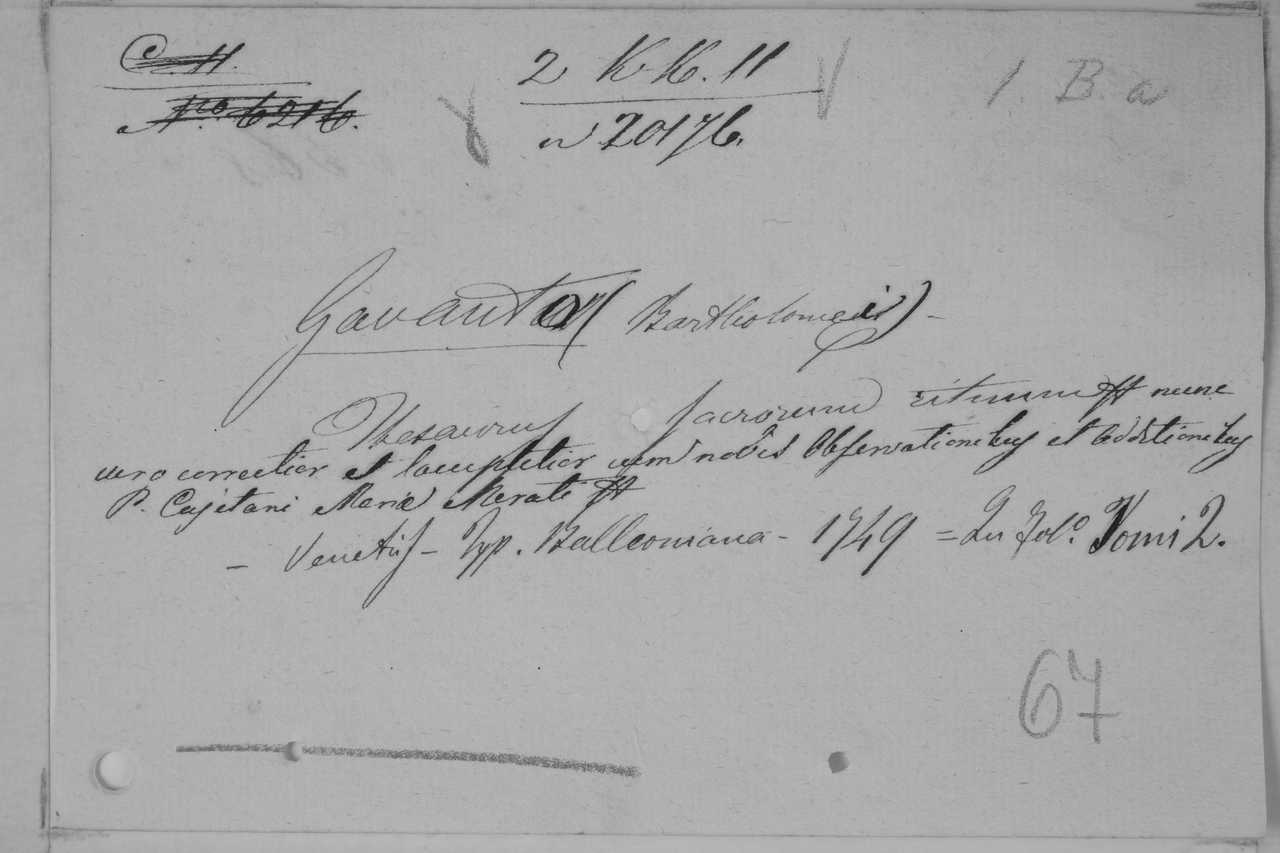 C. H.
2 K. K. 11
1. B. a
Nro. 6216.
n 20176.
Gavanto (Bartholomeis) -
Thesaurus sacrorum rituum & nunc
vero correctior et locupletior cum novis Observationibus et additionibus
P. Cajetani Mariæ Merati &
- Venetiis - Typ. Balleoniana - 1749 = In Fol.º Tomi 2.
67